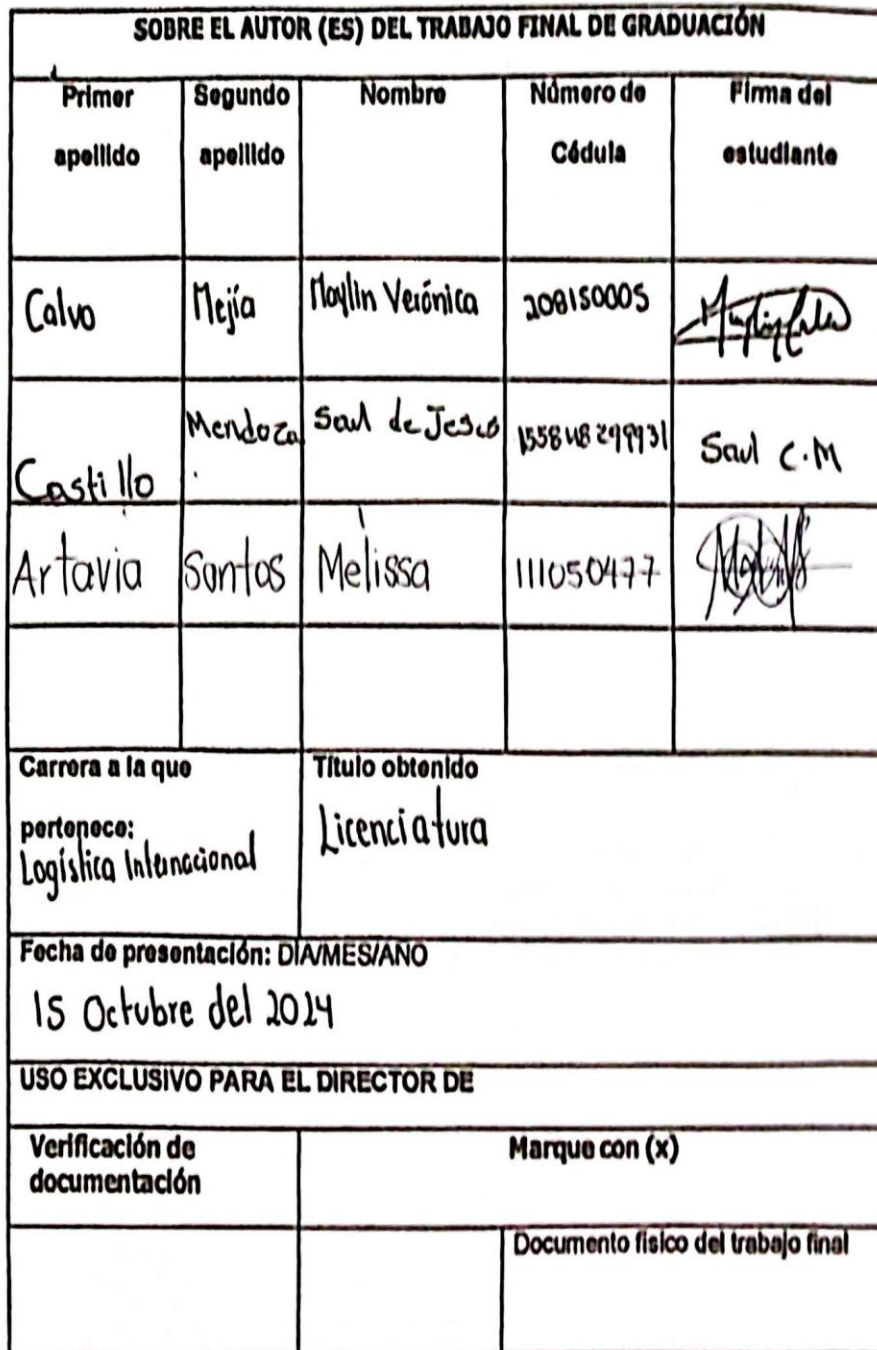 SOBRE EL AUTOR (ES) DEL TRABAJO FINAL DE GRADUACIÓN
Primer apellido
Segundo apellido
Nombre
Número de Cédula
Firma del estudiante
Calvo
Mejía
Maylin Verónica
208150005
Castillo
Mendoza
Saul de Jesús
Saul C.M
Artavia
Santos
Melissa
111050477
Carrera a la que
pertenece:
Logística Internacional
Título obtenido
Licenciatura
Fecha de presentación: DIA/MES/AÑO
15 Octubre del 2024
USO EXCLUSIVO PARA EL DIRECTOR DE
Verificación de
documentación
Marque con (x)
Documento físico del trabajo final